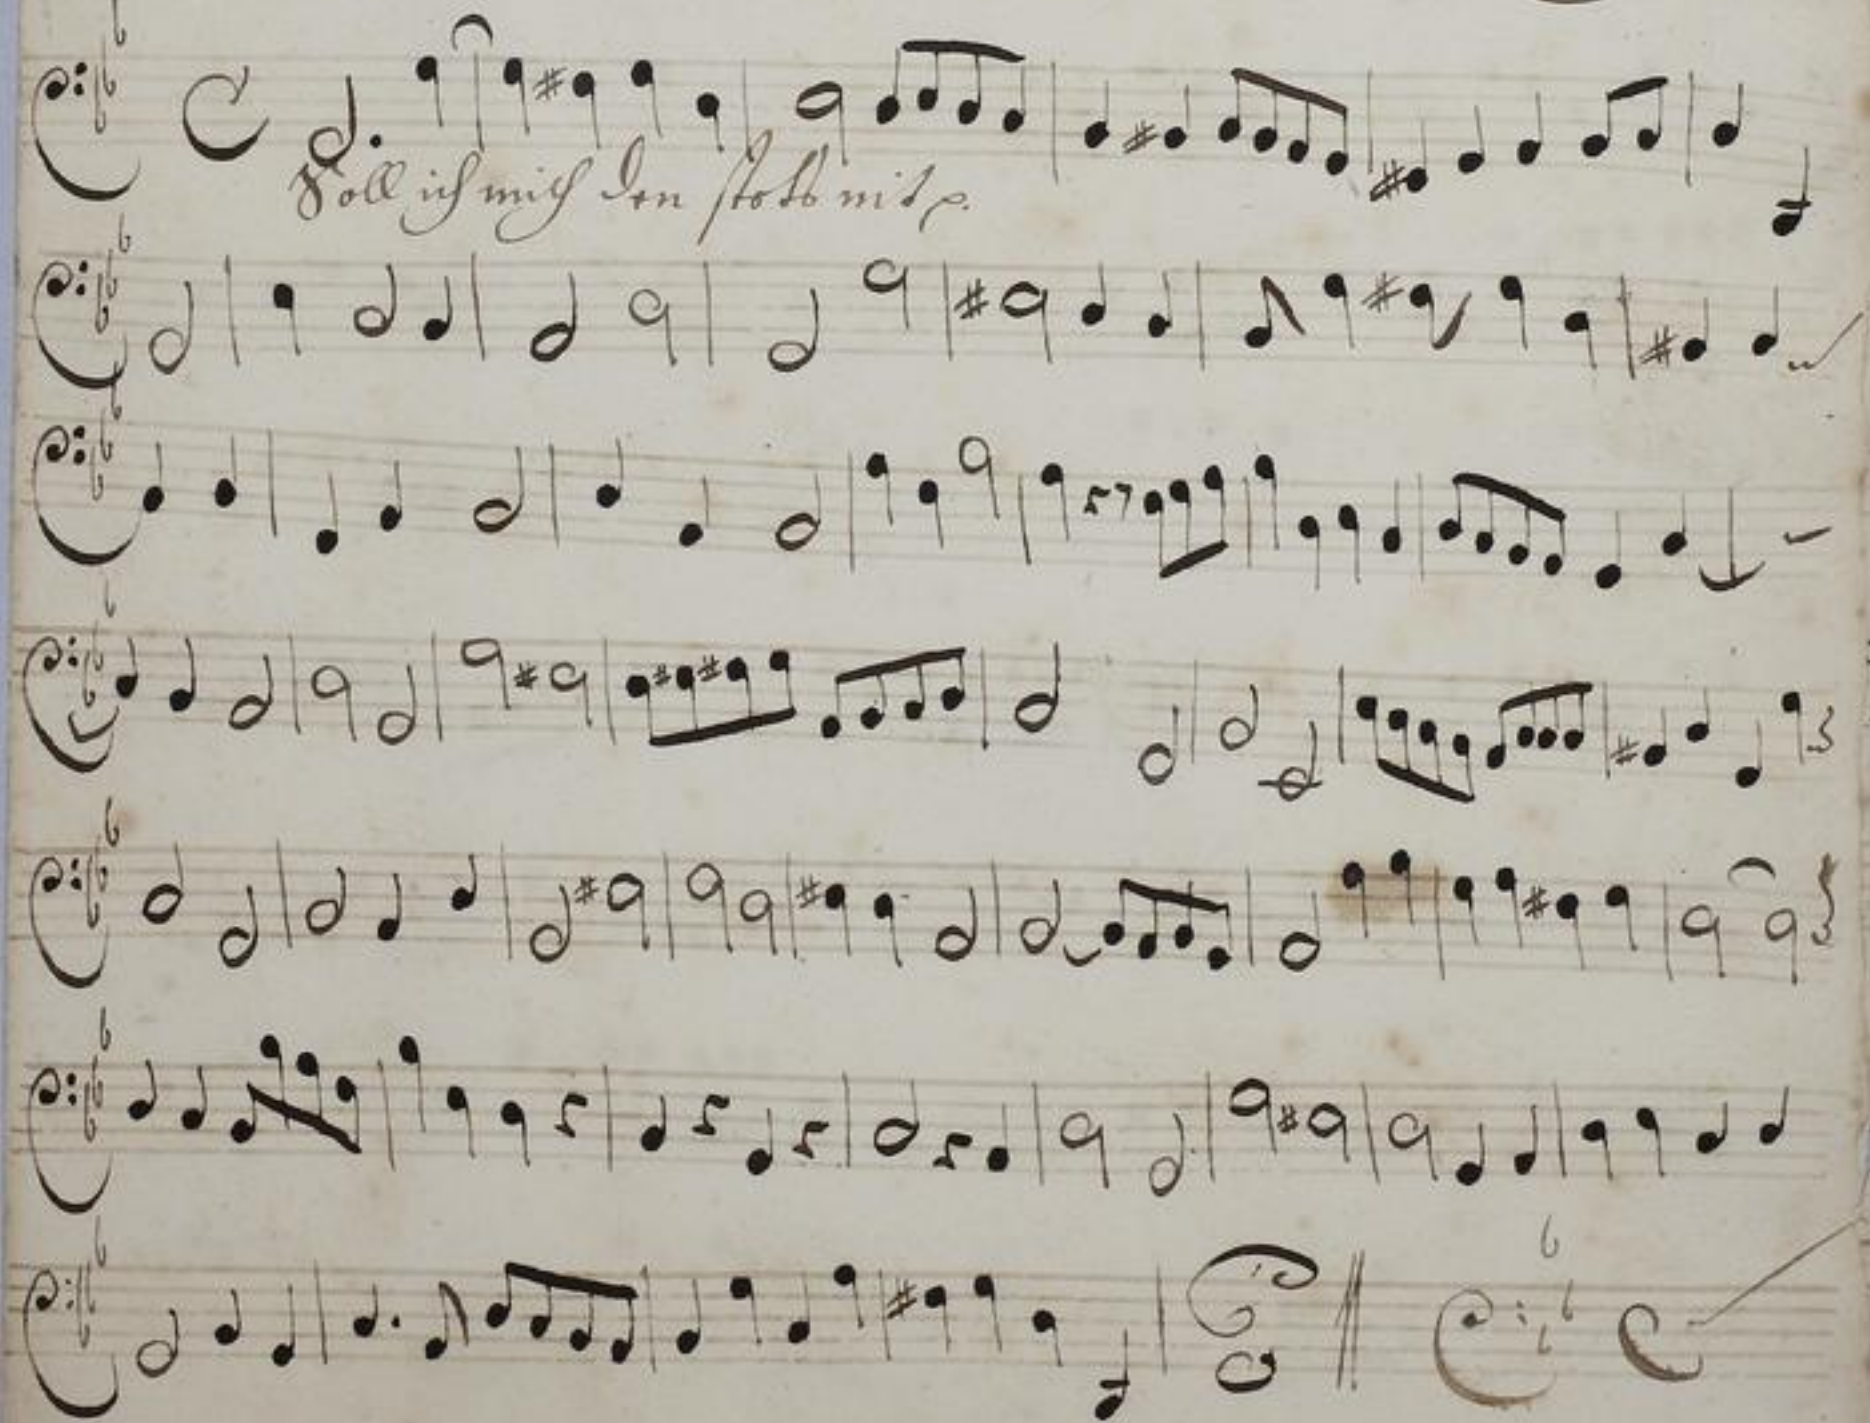 Soll ich mich den stets mit